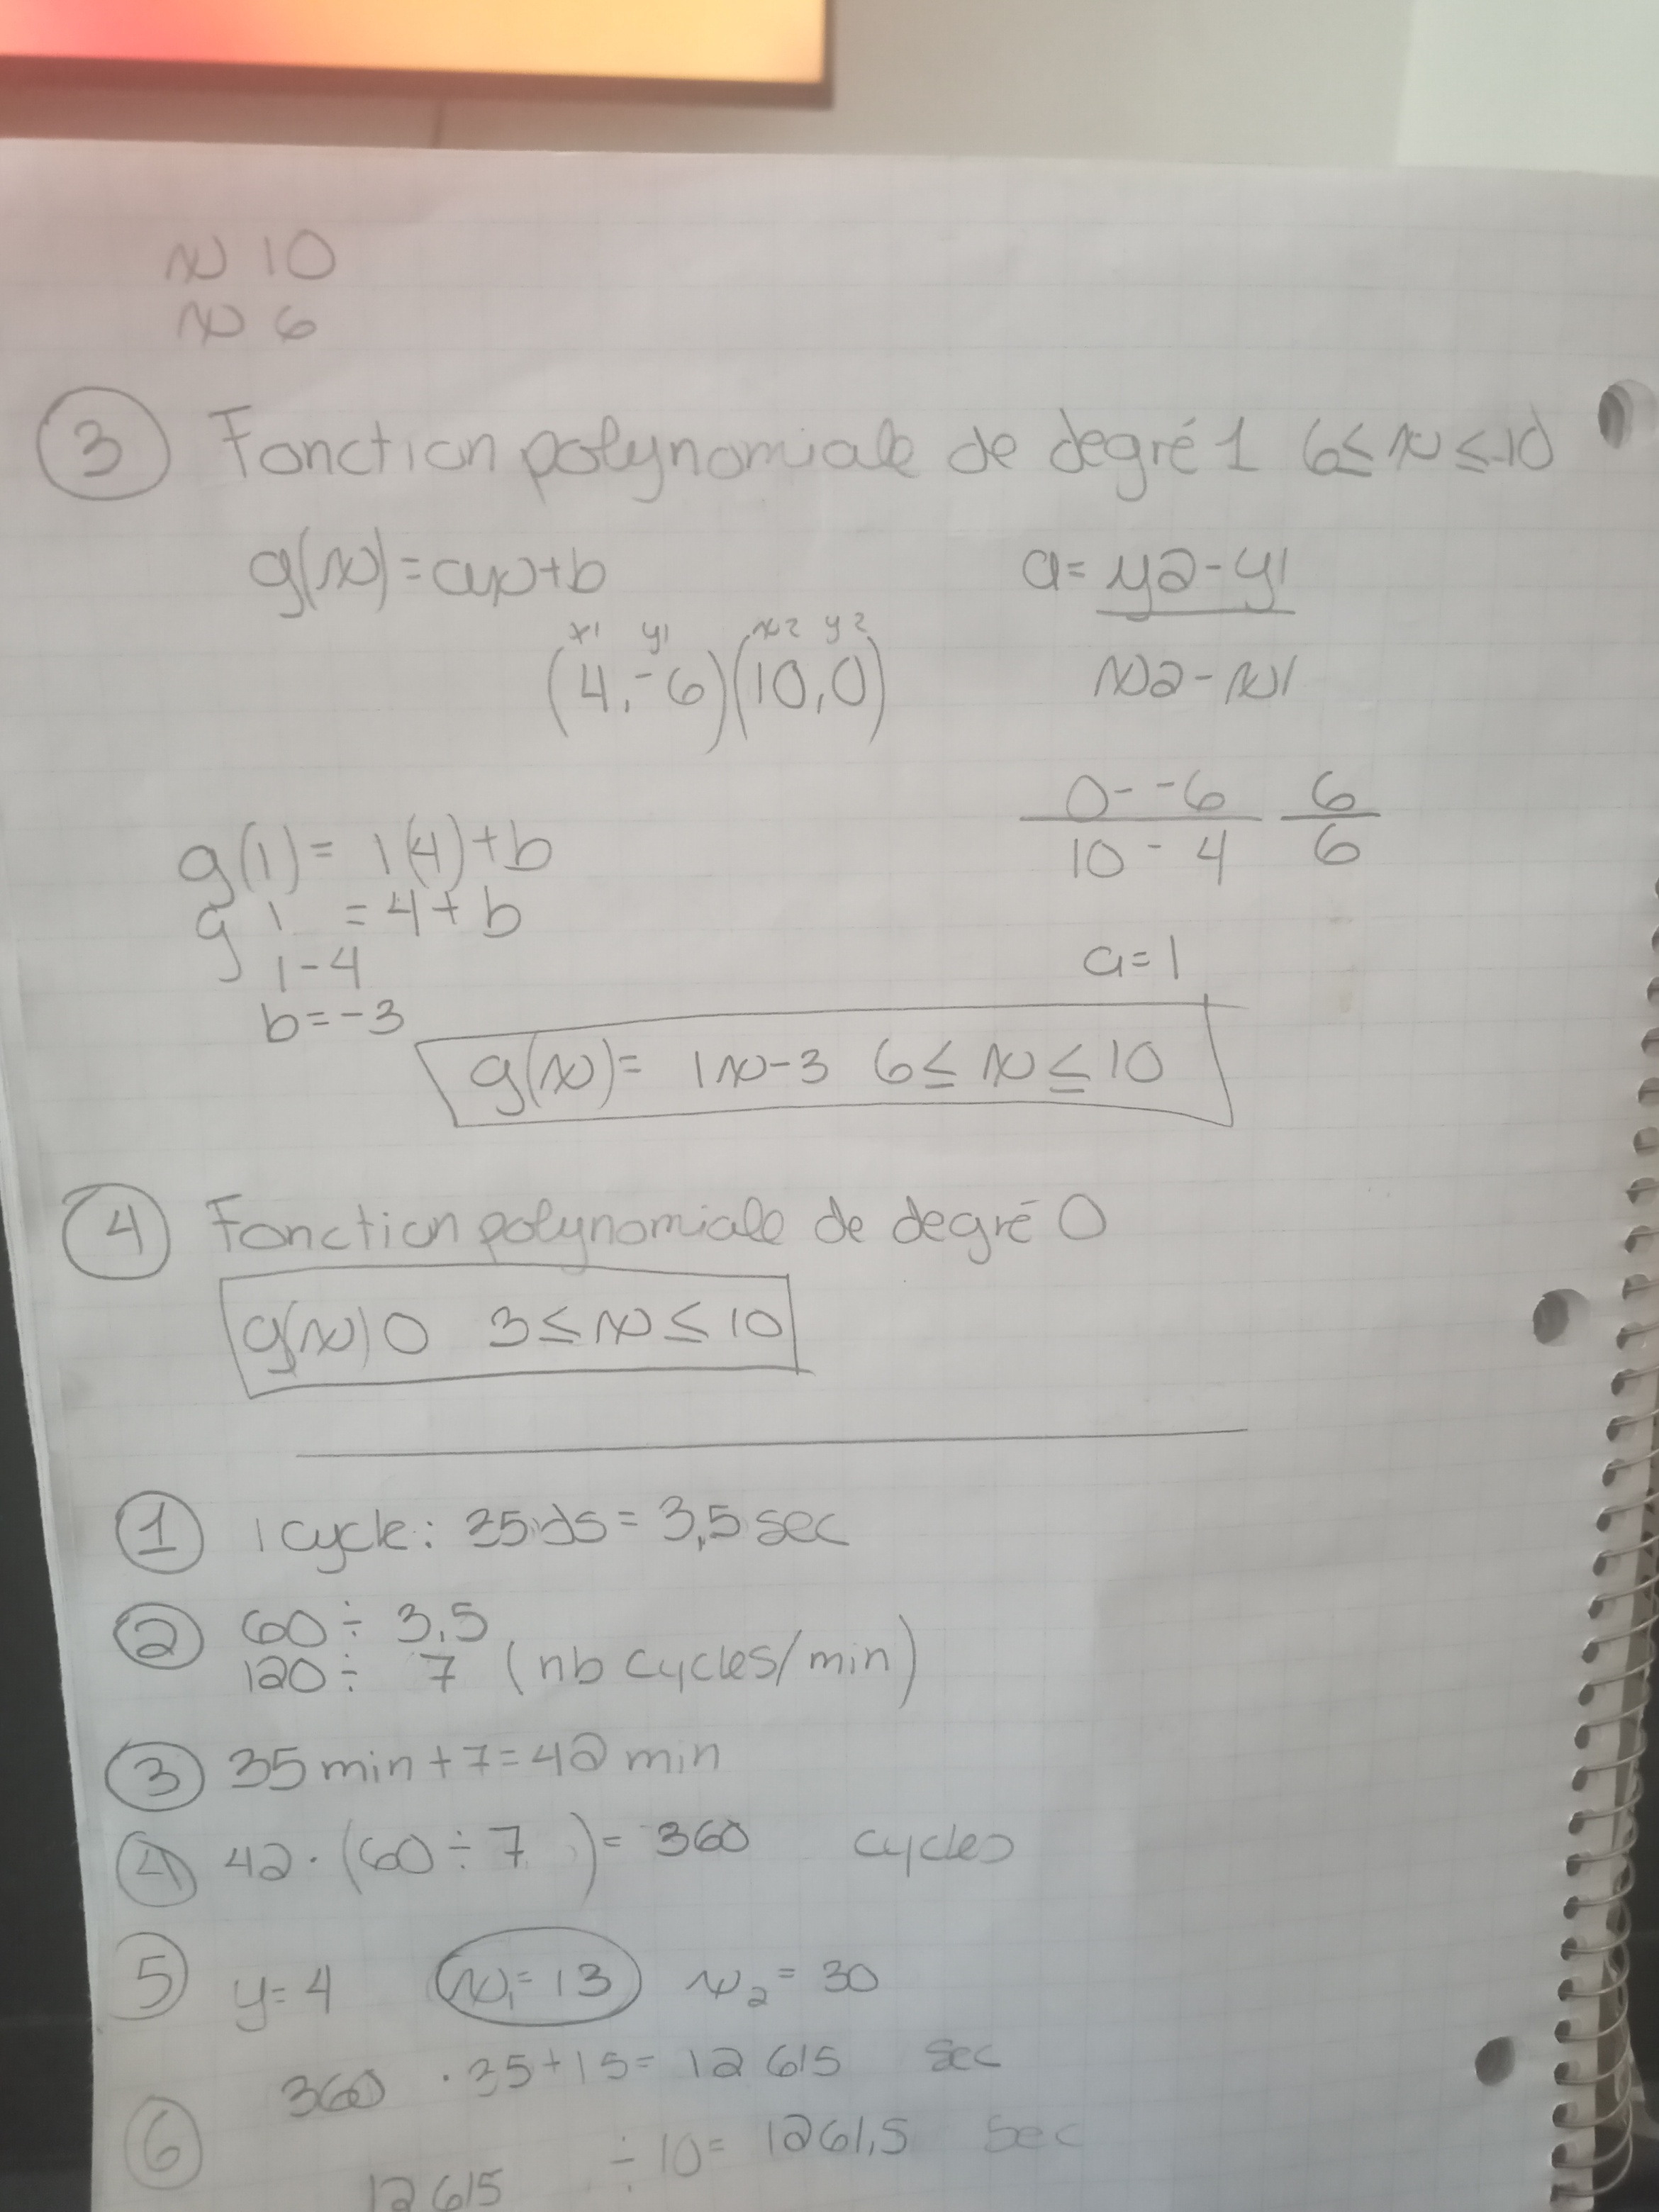 x 10
x 6
3 Fonction polynomiale de degré 1 6≤x≤10
g(x)=ax+b a= y2-y1
x1 y1 x2 y2
(4,-6)(10,0) x2-x1
0--6 6
10-4 6
g(1)= 1(4)+b
g 1 = 4+b
1-4 a=1
b=-3
g(x)= 1x-3 6≤x≤10
4 Fonction polynomiale de degré 0
g(x) 0 3≤x≤10
1 1 cycle: 35 ds = 3,5 sec
2 60÷ 3,5
120÷ 7 (nb cycles/min)
3 35 min+7=42 min
4 42·(60÷7)= 360 cycles
5 y=4 x1=13 x2=30
360 ·35+15= 12 615 sec
6 12 615 ÷10= 1261,5 sec